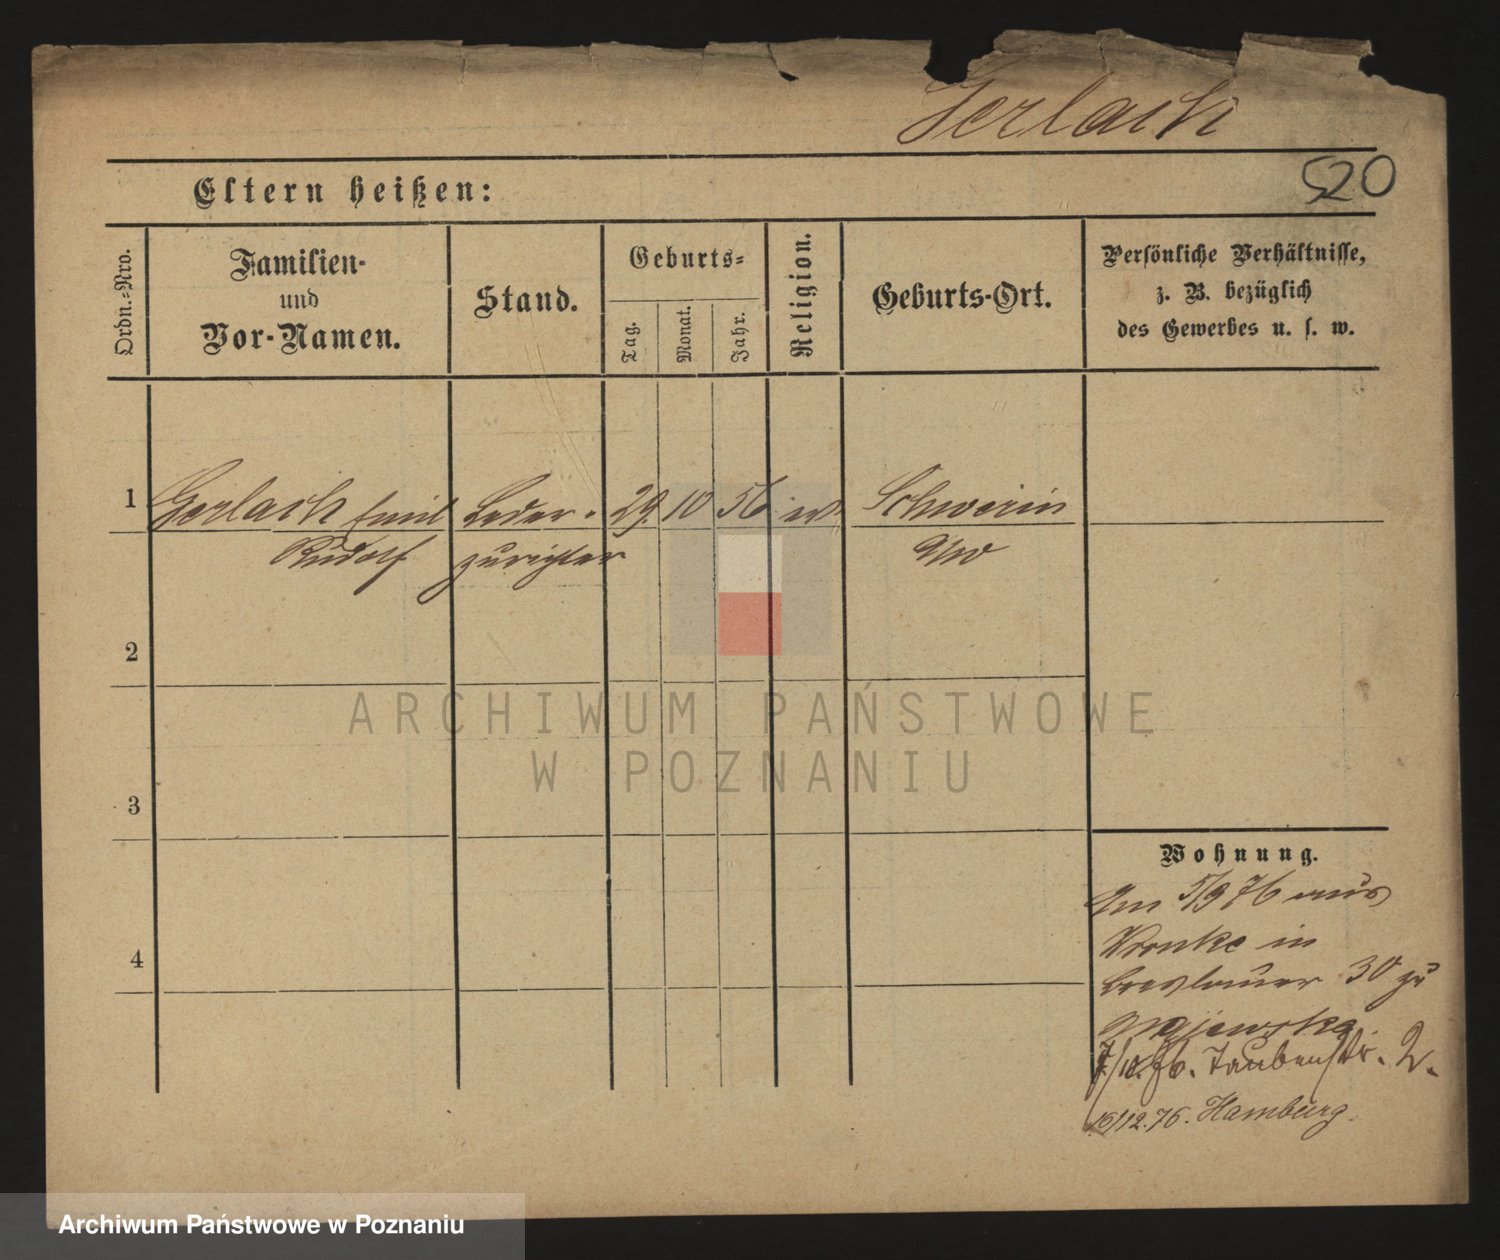 Gerlach
520
Eltern heißen:
Ordn.-Nro.
Familien-
und
Vor-Namen.
Stand.
Geburts-
Tag.
Monat.
Jahr.
Religion.
Geburts-Ort.
Persönliche Verhältnisse,
z. B. bezüglich
des Gewerbes u. s. w.
1
Gerlach Emil
Rudolf
Leder-
zurichter
29.
10
56
ev.
Schwerin
a/W
2
3
4
Wohnung.
Am 5/9 76 aus
Wronke in
Breslauer 30 zu
Majewska
7/10. 76. Taubenstr. 2.
16/12. 76. Hamburg.
ARCHIWUM PAŃSTWOWE
W POZNANIU
Archiwum Państwowe w Poznaniu